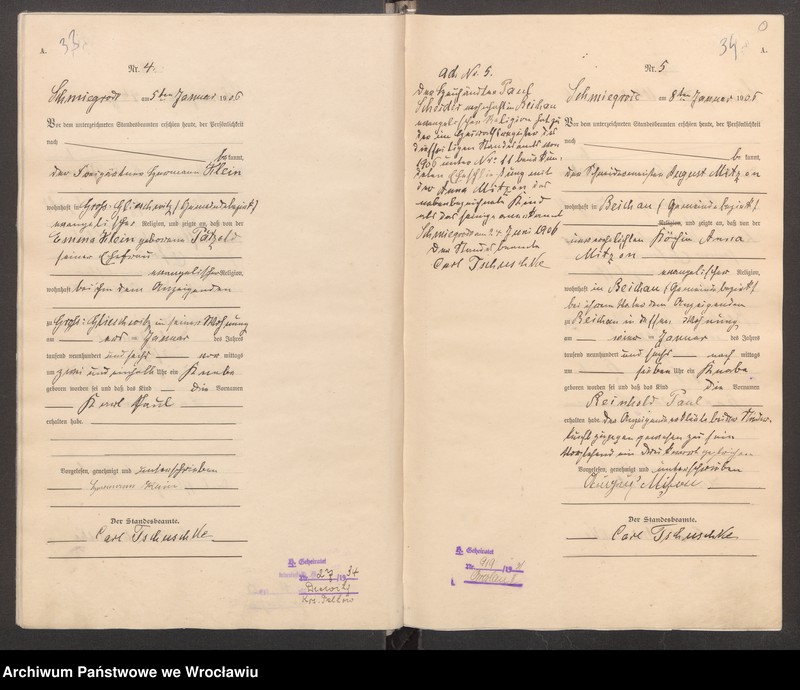 A.
33
Nr. 4.
Schmiegrode am 5ten Januar 1906
Vor dem unterzeichneten Standesbeamten erschien heute, der Persönlichkeit
nach
be kannt,
der Hermann Klein
wohnhaft in Groß-Glieschwitz (Gemeindebezirk)
evangelischer Religion, und zeigte an, daß von der
Emma Klein geborenen Pätzold
seiner Ehefrau
evangelischer Religion,
wohnhaft bei ihm dem Anzeigenden
zu Groß-Glieschwitz in seiner Wohnung
am ersten Januar des Jahres
tausend neunhundert und sechs vor mittags
um zwei und einhalb Uhr ein Knabe
geboren worden sei und daß das Kind die Vornamen
Karl Paul
erhalten habe.
Vorgelesen, genehmigt und unterschrieben
Hermann Klein
Der Standesbeamte.
Carl Tschuschke
Geheiratet
Nr. 27/1934
ad No. 5.
Der Paul
Schröder wohnhaft in Beichau
evangelischer Religion hat zu
der im Heiratsregister des
diesseitigen Standesamts von
1906 unter Nr. 11 beurkun-
deten Eheschließung mit
der Anna Mitzon das
nebenbezeichnete Kind
als das seinige anerkannt
Schmiegrode am 24 Juni 1906
Der Standesbeamte
Carl Tschuschke
Geheiratet
Nr. 919
Breslau I
34
A.
Nr. 5
Schmiegrode am 8ten Januar 1906
Vor dem unterzeichneten Standesbeamten erschien heute, der Persönlichkeit
nach
be kannt,
der Schneidermeister August Mitzon
wohnhaft in Beichau (Gemeindebezirk)
Religion, und zeigte an, daß von der
unverehelichten Köchin Anna
Mitzon
evangelischer Religion,
wohnhaft in Beichau (Gemeindebezirk)
bei ihrem Vater dem Anzeigenden
zu Beichau in dessen Wohnung
am vierten Januar des Jahres
tausend neunhundert und sechs nach mittags
um sieben Uhr ein Knabe
geboren worden sei und daß das Kind die Vornamen
Reinhold Paul
erhalten habe. Der Anzeigende erklärte bei der Nieder-
kunft zugegen gewesen zu sein
Vorstehend ein Druckwort gestrichen
Vorgelesen, genehmigt und unterschrieben
August Mitzon
Der Standesbeamte.
Carl Tschuschke
Archiwum Państwowe we Wrocławiu